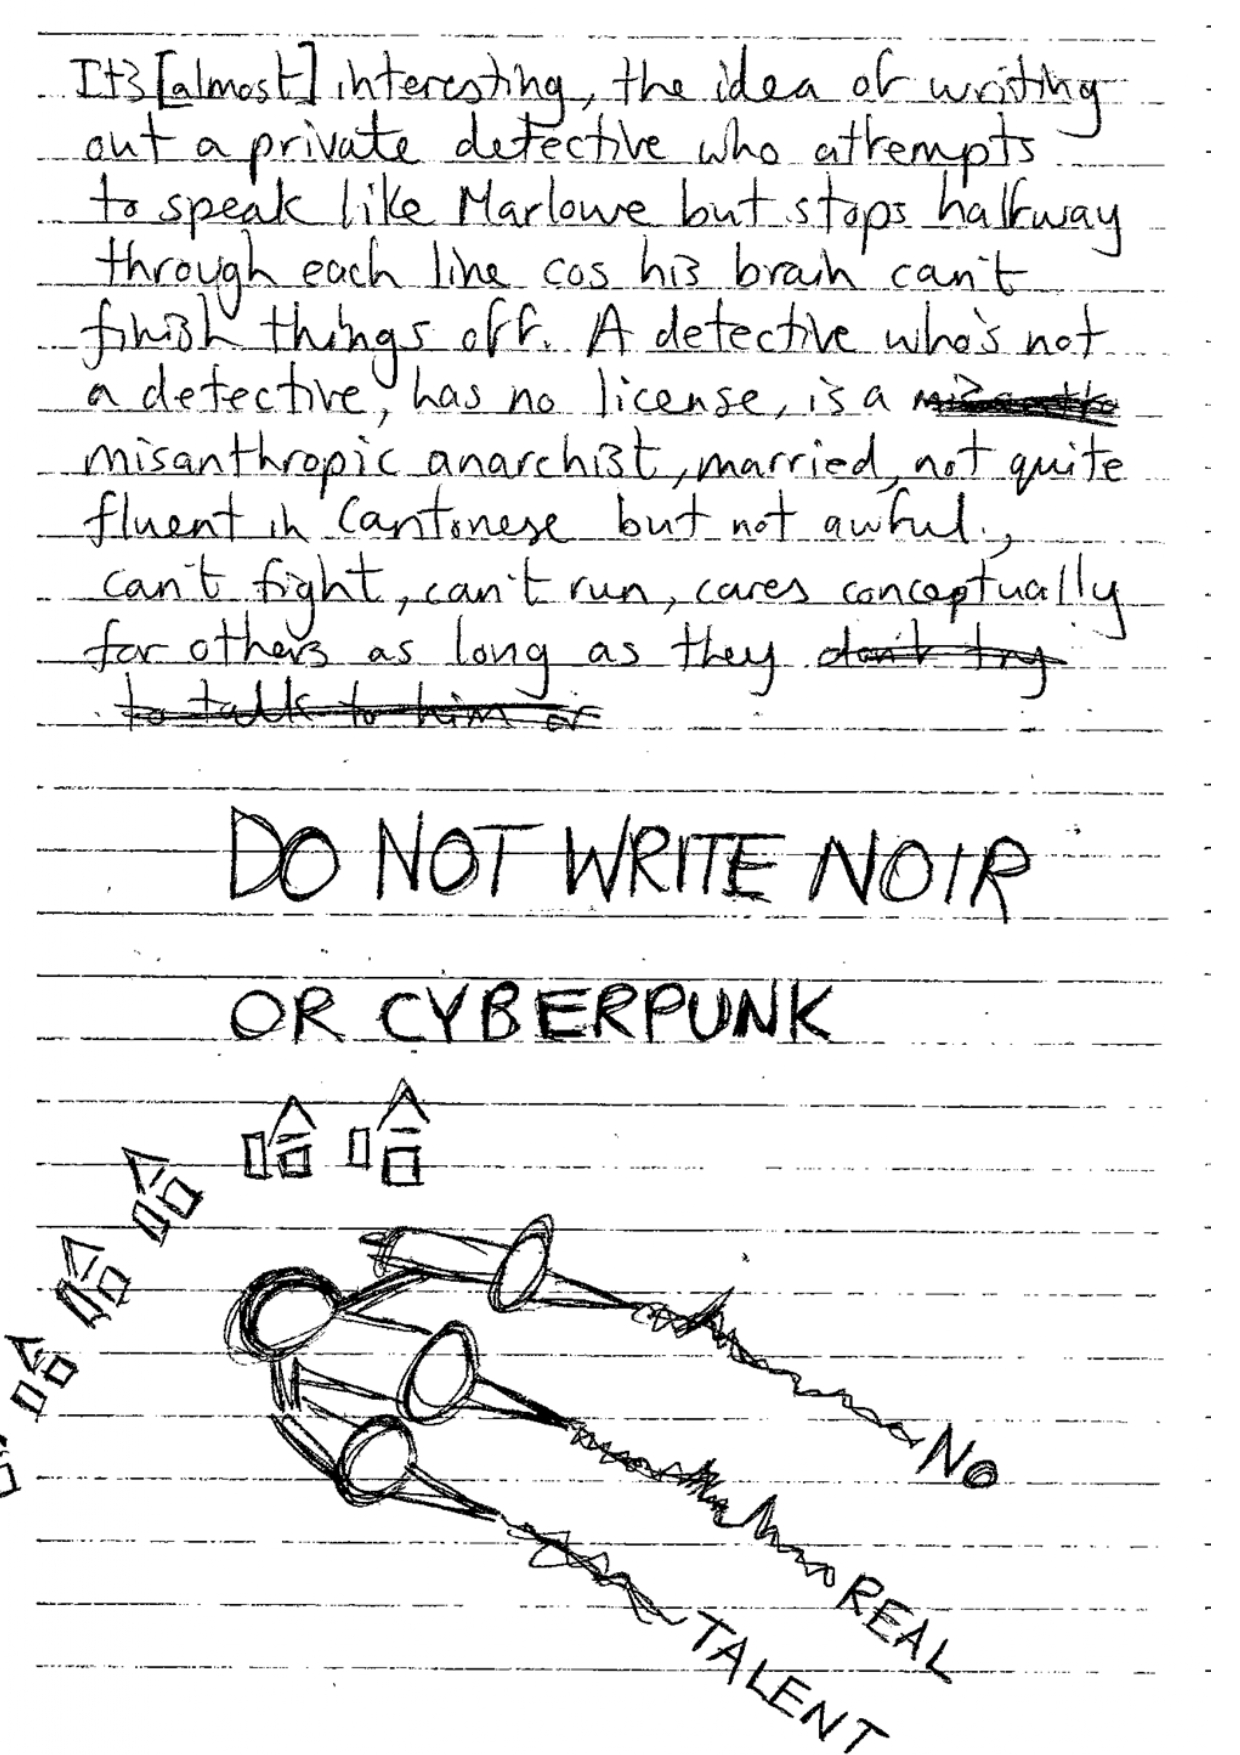 It's [almost] interesting, the idea of writing
out a private detective who attempts
to speak like Marlowe but stops halfway
through each line cos his brain can't
finish things off. A detective who's not
a detective, has no license, is a
misanthropic anarchist, married, not quite
fluent in Cantonese but not awful,
can't fight, can't run, cares conceptually
for others as long as they don't try
to talk to him or
DO NOT WRITE NOIR
OR CYBERPUNK
NO
REAL
TALENT